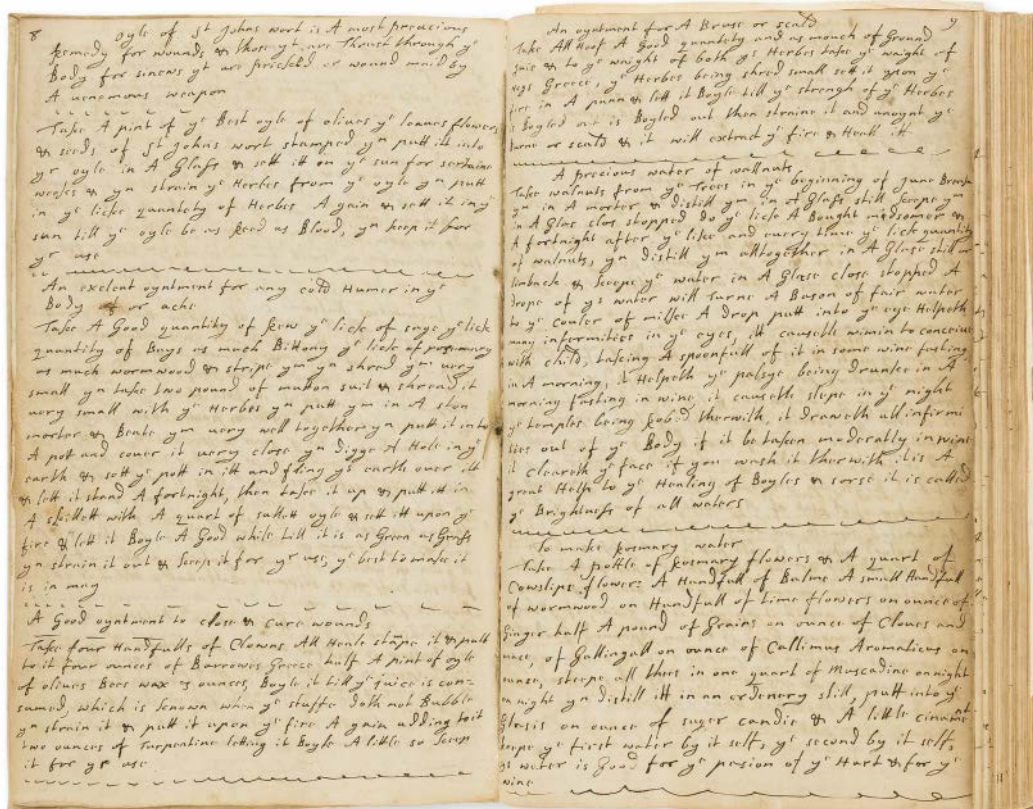 8
oyle of St Johns wort is A most precious
Remedy for wounds & those yt are Thrust through ye
Body for sinews yt are pricked or wound maid by
A uenomous weapon
Take A pint of ye Best oyle of oliues ye leaues flowers
& seeds of St Johns wort stamped yn putt it into
ye oyle in A Glass & sett itt on ye sun for sertaine
weekes & yn strain ye Herbes from ye oyle yn putt
in ye licke quantety of Herbes A gain & sett it in ye
sun till ye oyle be as Read as Blood, yn keep it for
yr use
An exelent oyntment for any cold Humer in ye
Body or ache
Take A Good quantity of Rew ye licke of sage ye lick
quantity of Bays as much Bittony ye licke of rosemary
as much wormwood & stripe ym yn shred ym uery
small yn take two pound of mutton suit & shread it
uery small with ye Herbes yn putt ym in A ston
morter & Beate ym uery well together yn putt it into
A pot and couer it uery close yn digge A Hole in ye
earth & sett ye pott in itt and fling ye earth ouer itt
& lett it stand A fortnight, then take it up & putt itt in
A skillett with A quart of sallett oyle & sett itt upon ye
fire & lett it Boyle A Good while till it is as Green as Grass
yn strain it out & keep it for yr use, ye best to make it
is in may
A Good oyntment to close & cure wounds
Take four Handfulls of Clowns All Heale stampe it & putt
to it four ounces of Barrowes Greece half A pint of oyle
of oliues Bees wax 3 ounces, Boyle it till ye juice is con=
sumed, which is known when ye stuffe doth not Bubble
yn strain it & putt it upon ye fire A gain adding to it
two ounces of Turpentine letting it Boyle A little so keep
it for yr use
9
An oyntment for A Bruse or scald
Take All Hoof A Good quantety and as mouch of Ground
& to ye waight of both ye Herbes take ye waight of
Hogs Greece, ye Herbes being shred small sett it upon ye
fire in A pann & lett it Boyle till ye strengh of ye Herbes
Boyled is Boyled out then straine it and anoynt ye
burne or scald & it will extract ye fire & Heall itt
A precious water of wallnuts
Take walnuts from ye Trees in ye beginning of June
ym in A morter & distill ym in A Glass still keepe ym
in A Glas clos stopped do ye licke A Bought midsomer &
A fortnight after ye like and euery time ye lick quantity
of walnuts, yn distill ym alltogether in A Glase still or
limback & keepe ye water in A Glase close stopped A
drope of ys water will Turne A Bason of fair water
to ye couler of milke A drop putt into ye eye Helpeth
many infermities in ye eyes, itt causeth wimin to conceiue
with child, taking A spoonfull of it in some wine fasting
in A morning, it Helpeth ye palsye being drunke in A
morning fasting in wine, it causeth slepe in ye night
ye temples being Robed therwith, it draweth all infirmi
ties out of ye Body if it be taken moderatly in wine
it cleareth ye face if you wash it therwith it is A
great Help to ye Healing of Boyles & sorse it is called
ye Brightnes of all waters
To make Rosmary water
Take A pottle of Rosmary flowers & A quart of
Cowslips flowers A Handfull of Balme A small Handfull
of wormwood on Handfull of time flowers on ounce of
Ginger half A pound of Grains on ounce of Cloues and
mace, of Gallingall on ounce of Callimus Aromaticus on
ounse, steepe all thees in one quart of Muscadine on night
on night yn distill itt in an ordenery still, putt into ye
Glasis on ounce of suger candie & A little cinamon
keepe ye first water by it self, ye second by it self,
ys water is Good for ye pasion of ye Hart & for ye
wine